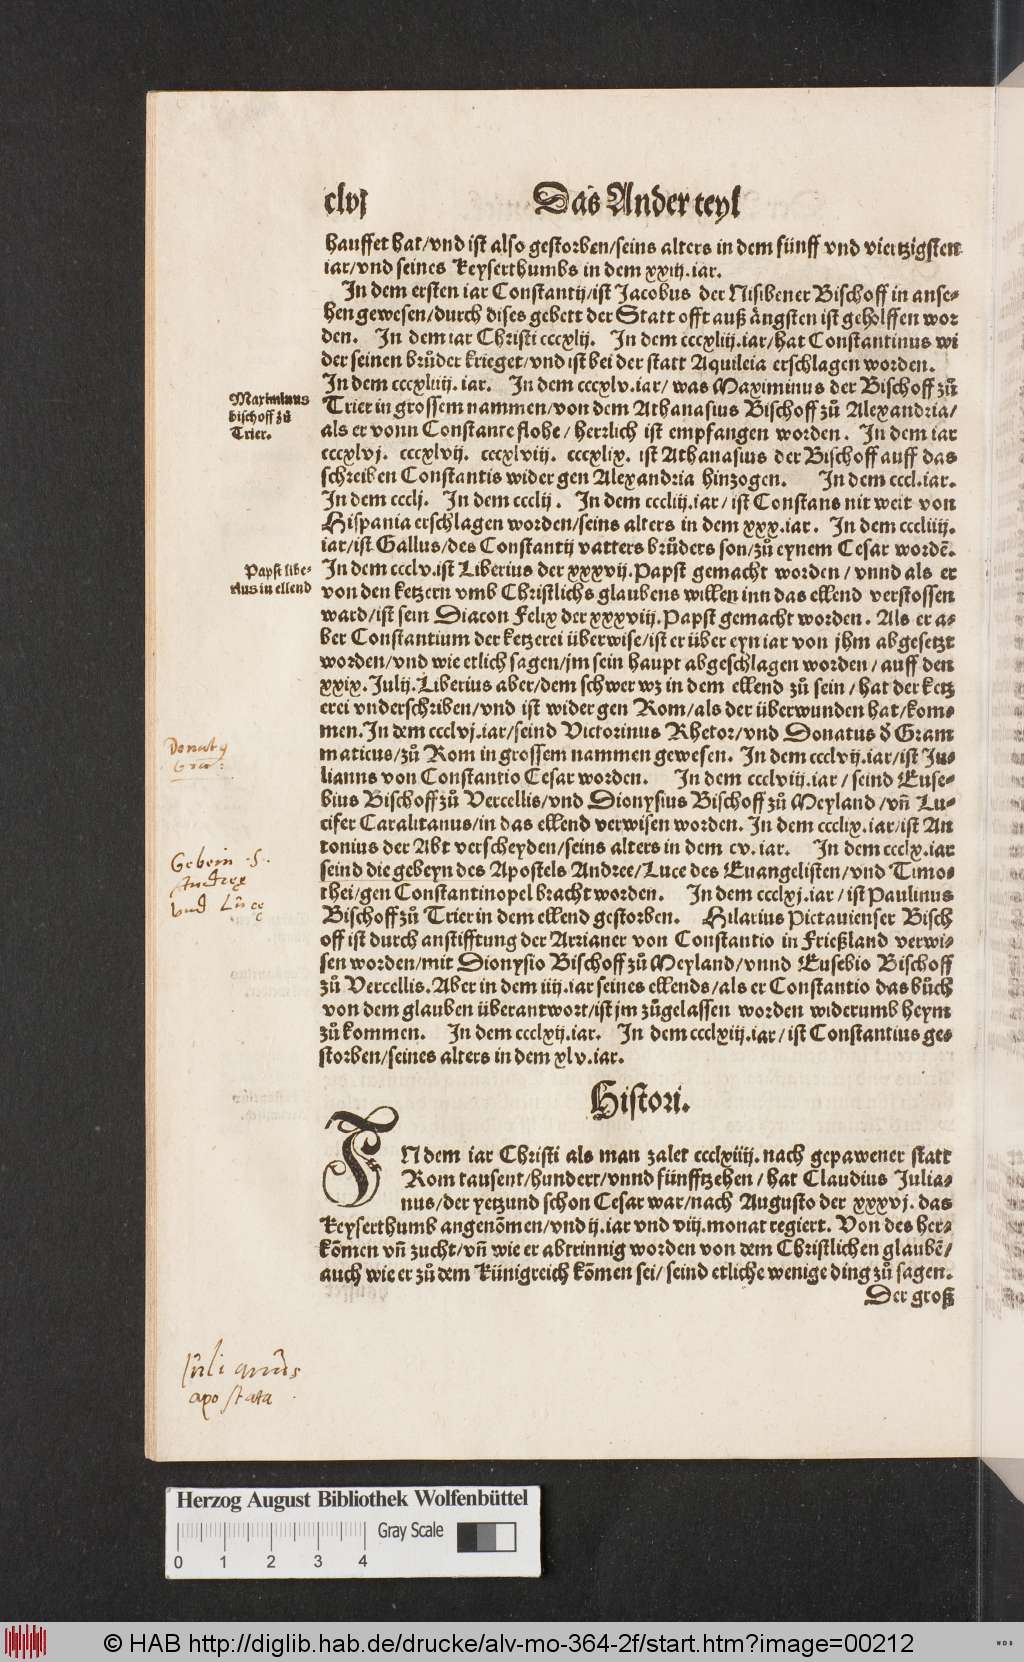 clvj
Das Ander teyl
hauffet hat/vnd ist also gestorben/seins alters in dem fünff vnd viertzigsten
iar/vnd seines Keyserthumbs in dem xxiij.iar.
In dem ersten iar Constantij/ist Jacobus der Nisibener Bischoff in anse⸗
hen gewesen/durch dises gebett der Statt offt auß ängsten ist geholffen wor
den. In dem iar Christi cccxlij. In dem cccxliij.iar/hat Constantinus wi
der seinen brůder krieget/vnd ist bei der statt Aquileia erschlagen worden.
In dem cccxliiij. iar. In dem cccxlv.iar/was Maximinus der Bischoff zů
Maximinus
bischoff zů
Trier.
Trier in grossem nammen/von dem Athanasius Bischoff zů Alexandria/
als er vonn Constante flohe/herrlich ist empfangen worden. In dem iar
cccxlvj. cccxlvij. cccxlviij. cccxlix. ist Athanasius der Bischoff auff das
schreiben Constantis wider gen Alexandria hinzogen. In dem cccl.iar.
In dem ccclj. In dem ccclij. In dem cccliij.iar/ist Constans nit weit von
Hispania erschlagen worden/seins alters in dem xxx.iar. In dem cccliiij.
iar/ist Gallus/des Constantij vatters brůders son/zů eynem Cesar wordē.
Papst libe⸗
rius in ellend
In dem ccclv.ist Liberius der xxxvij.Papst gemacht worden/vnnd als er
von den ketzern vmb Christlichs glaubens willen inn das ellend verstossen
ward/ist sein Diacon Felix der xxxviij.Papst gemacht worden. Als er a⸗
ber Constantium der ketzerei überwise/ist er über eyn iar von jhm abgesetzt
worden/vnd wie etlich sagen/jm sein haupt abgeschlagen worden/auff den
xxix.Julij.Liberius aber/dem schwer wz in dem ellend zů sein/hat der ketz
erei vnderschriben/vnd ist wider gen Rom/als der überwunden hat/kom⸗
men.In dem ccclvj.iar/seind Victorinus Rhetor/vnd Donatus đ Gram
maticus/zů Rom in grossem nammen gewesen. In dem ccclvij.iar/ist Ju⸗
lianns von Constantio Cesar worden. In dem ccclviij.iar/seind Euse⸗
bius Bischoff zů Vercellis/vnd Dionysius Bischoff zů Meyland/vñ Lu⸗
cifer Caralitanus/in das ellend verwisen worden. In dem ccclix.iar/ist An
tonius der Abt verscheyden/seins alters in dem cv.iar. In dem ccclx.iar
Gebein .S.
Andreę
vnd Lucę
seind die gebeyn des Apostels Andree/Luce des Euangelisten/vnd Timo⸗
thei/gen Constantinopel bracht worden. In dem ccclxj.iar/ist Paulinus
Bischoff zů Trier in dem ellend gestorben. Hilarius Pictauienser Bisch
off ist durch anstifftung der Arrianer von Constantio in Frießland verwi⸗
sen worden/mit Dionysio Bischoff zů Meyland/vnnd Eusebio Bischoff
zů Vercellis.Aber in dem iiij.iar seines ellends/als er Constantio das bůch
von dem glauben überantwort/ist jm zůgelassen worden widerumb heym
zů kommen. In dem ccclxij.iar. In dem ccclxiij.iar/ist Constantius ge⸗
storben/seines alters in dem xlv.iar.
Histori.
IN dem iar Christi als man zalet ccclxiiij.nach gepawener statt
Rom tausent/hundert/vnnd fünfftzehen/hat Claudius Julia⸗
nus/der yetzund schon Cesar war/nach Augusto der xxxvj. das
Keyserthumb angenōmen/vnd ij.iar vnd viij.monat regiert. Von des her⸗
kōmen vñ zucht/vñ wie er abtrinnig worden von dem Christlichen glaubē/
auch wie er zů dem Künigreich kōmen sei/seind etliche wenige ding zů sagen.
Der groß
Julianus
apostata
Herzog August Bibliothek Wolfenbüttel
Gray Scale
0 1 2 3 4
© HAB http://diglib.hab.de/drucke/alv-mo-364-2f/start.htm?image=00212